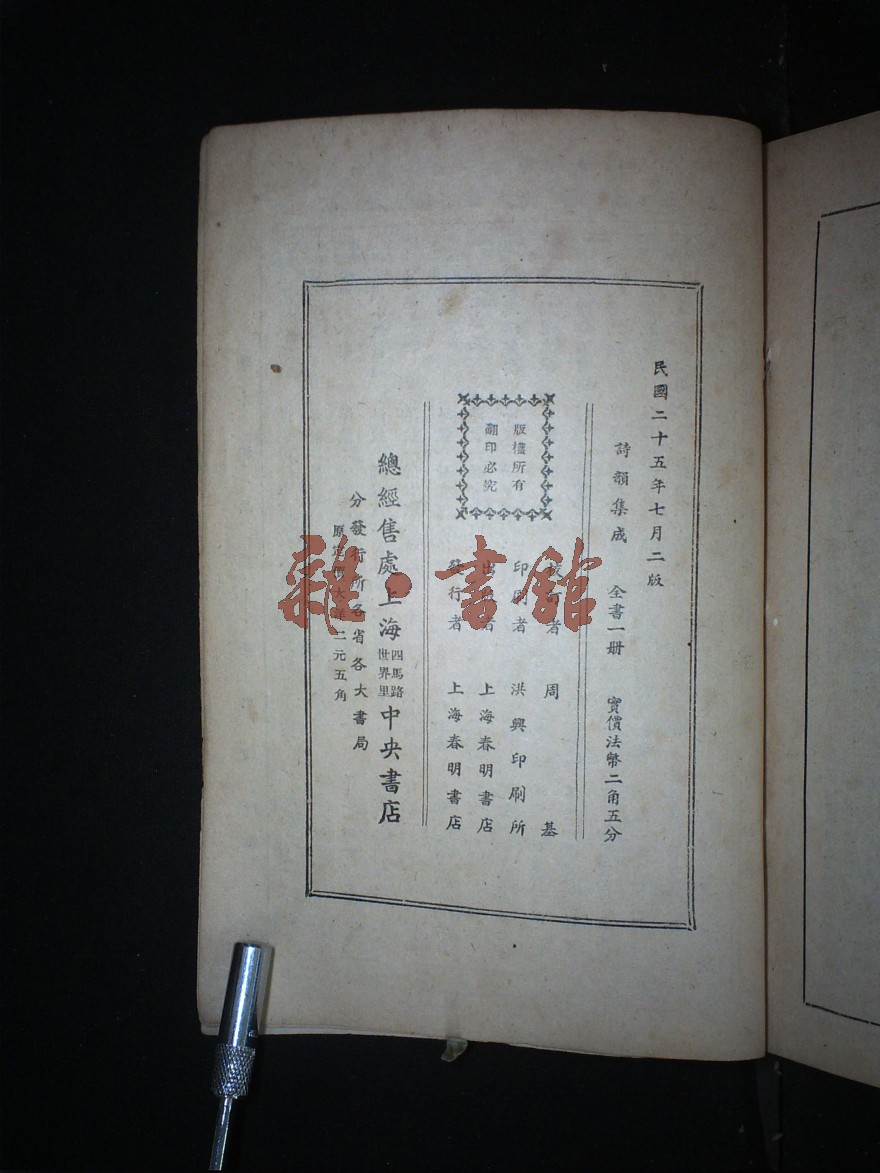 民國二十五年七月二版
詩韻集成 全書一册 實價法幣二角五分
版權所有
翻印必究
者 周基
印刷者 洪興印刷所
出者 上海春明書店
發行者 上海春明書店
總經售處上海四馬路世界里中央書店
分發行所各省各大書局
原定價大洋二元五角
雜·書館